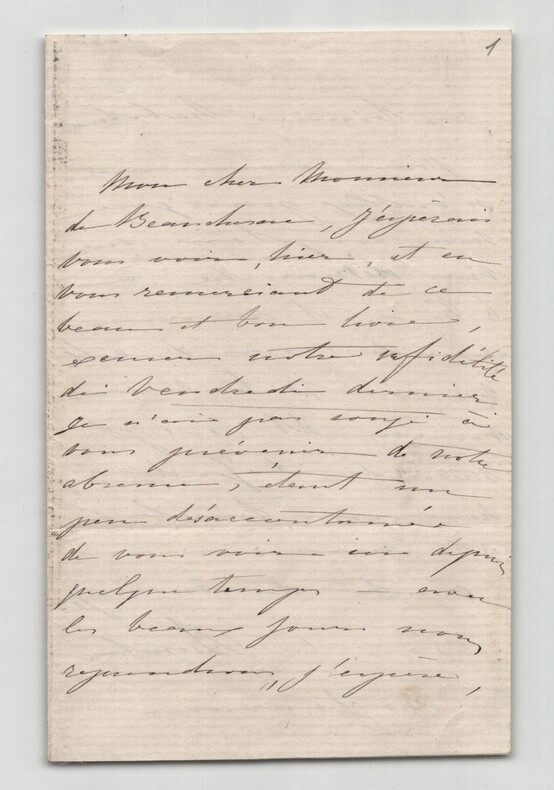 1
Mon cher Monsieur
de Beauchesne, j'espérais
vous voir, hier, et en
vous remerciant de ce
beau et bon livre,
excuser notre infidélité
de Vendredi dernier
je n'ai pas songé à
vous prévenir de notre
absence, étant un
peu désaccoutumée
de vous voir ici depuis
quelque temps —
les beaux jours nous
reprendrons, j'espère,